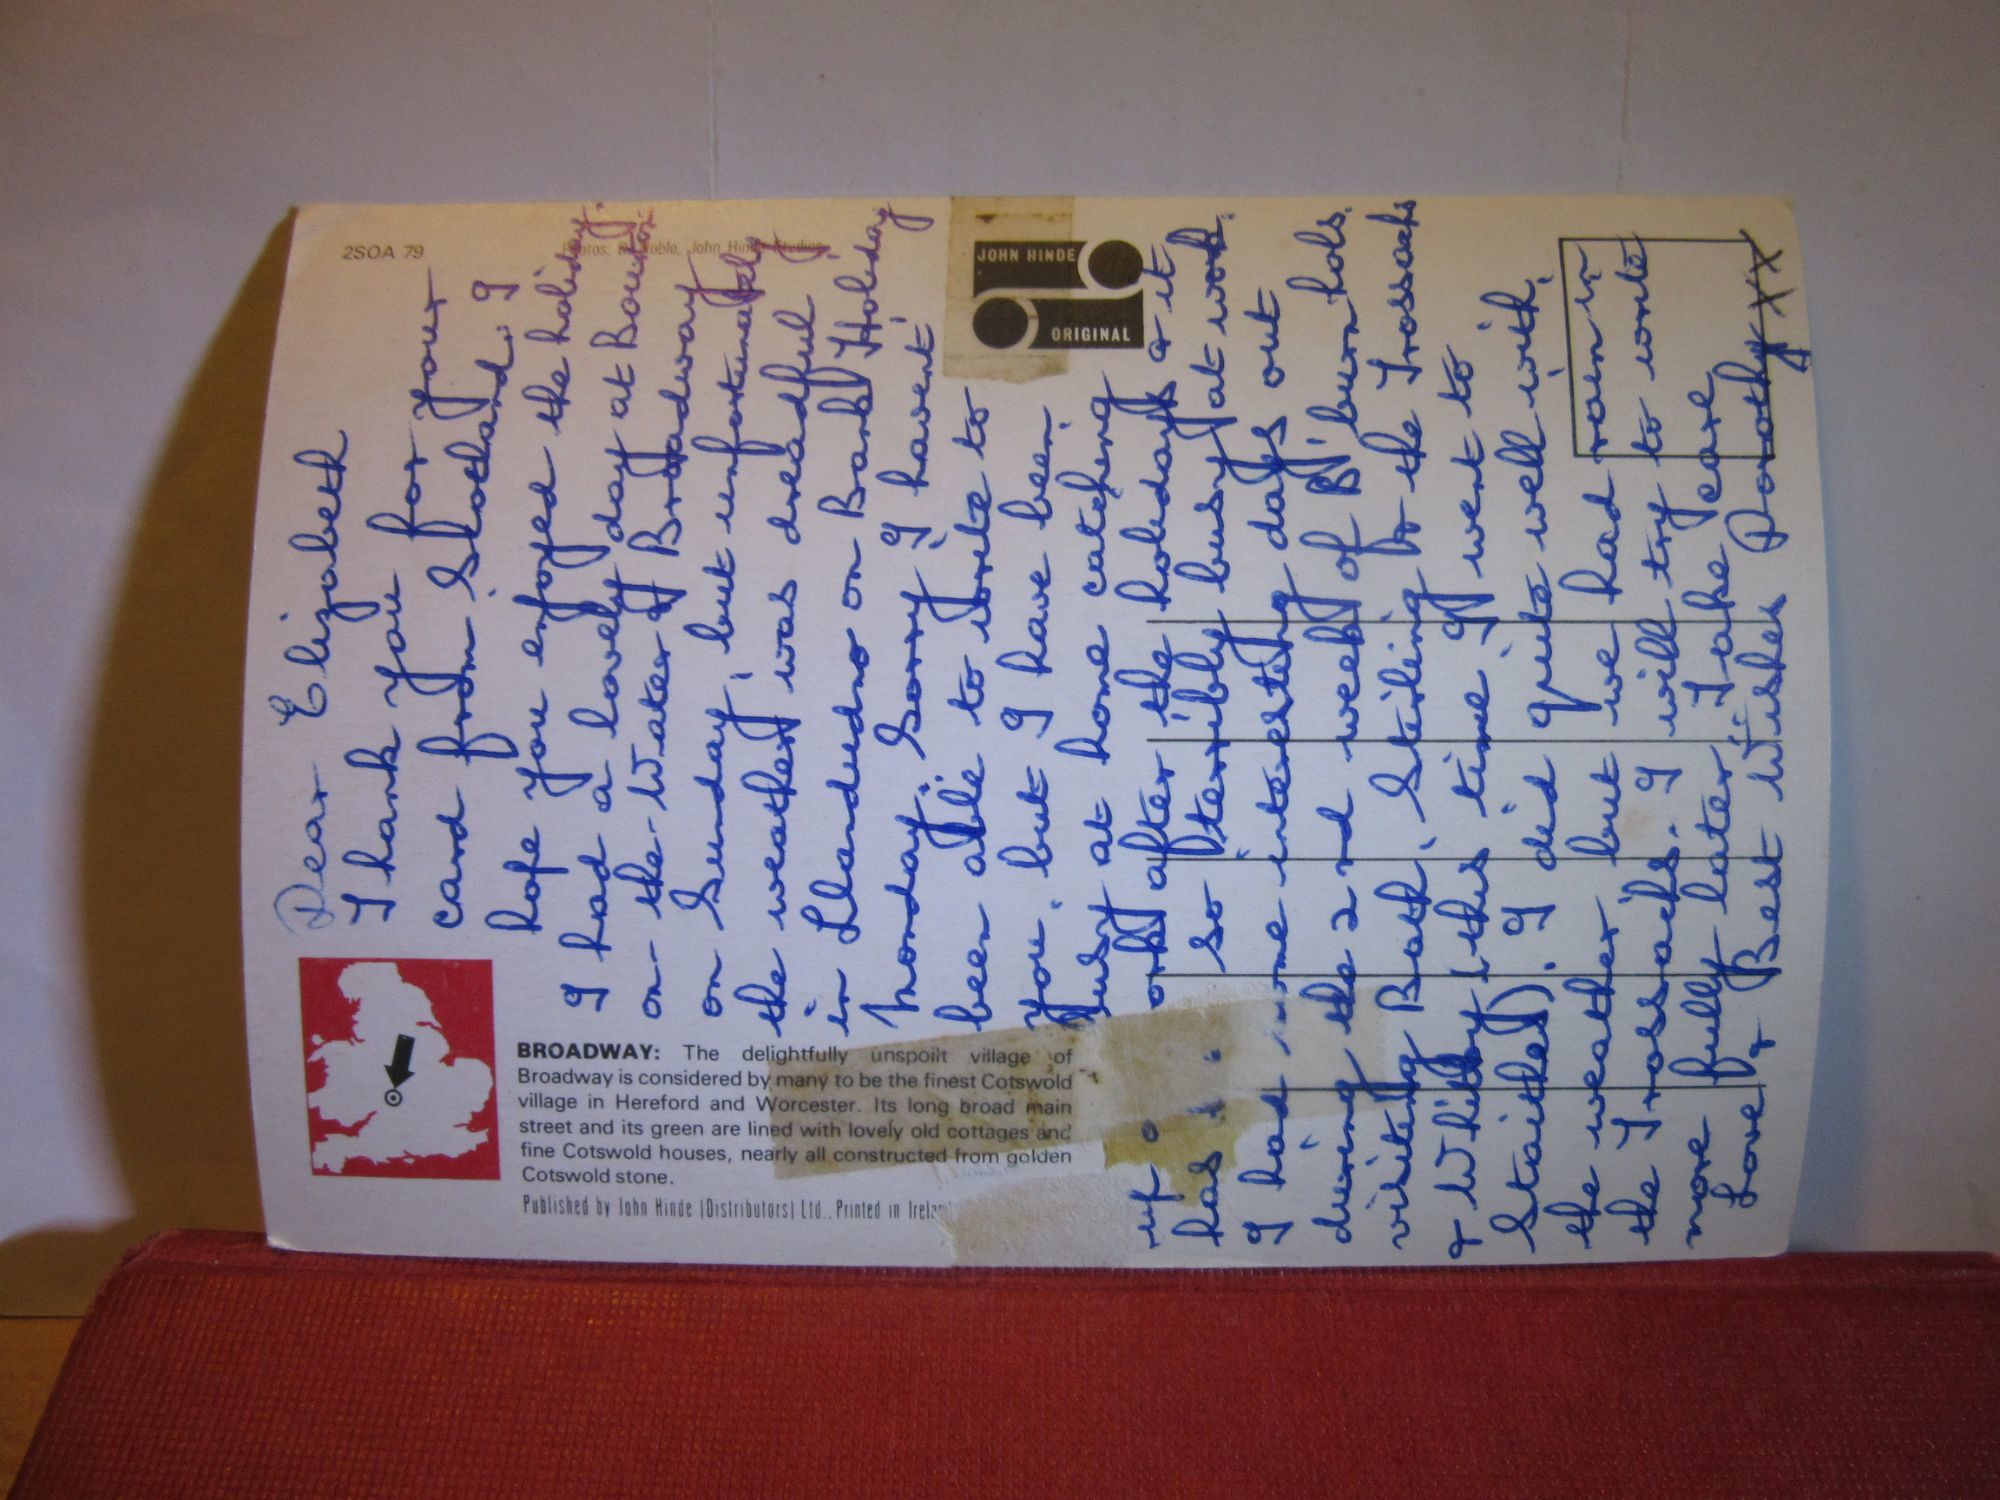 2SOA 79
BROADWAY: The delightfully unspoilt village of
Broadway is considered by many to be the finest Cotswold
village in Hereford and Worcester. Its long broad main
street and its green are lined with lovely old cottages and
fine Cotswold houses, nearly all constructed from golden
Cotswold stone.
Published by John Hinde (Distributors) Ltd., Printed in
John Hinde Studios
JOHN HINDE
ORIGINAL
Dear Elizabeth
Thank you for your
card from Scotland. I
hope you enjoyed the holiday.
I had a lovely day at Bourton-
on-the-Water & Broadway
on Sunday, but unfortunately
the weather was dreadful
in Llandudno on Bank Holiday
Monday. Sorry I havent
been able to write to
you, but I have been
busy at home catching
up after the holidays & it
has so terribly busy at work.
I had some interesting days out
during the 2nd week of B'burn hols.
visiting Bath, Stirling & the Trossachs
& Whitby (this time I went to
Staithes). I did quite well with
the weather but we had rain in
the Trossachs. I will try to write
more fully later. Take care
Love & Best Wishes Dorothy XXX